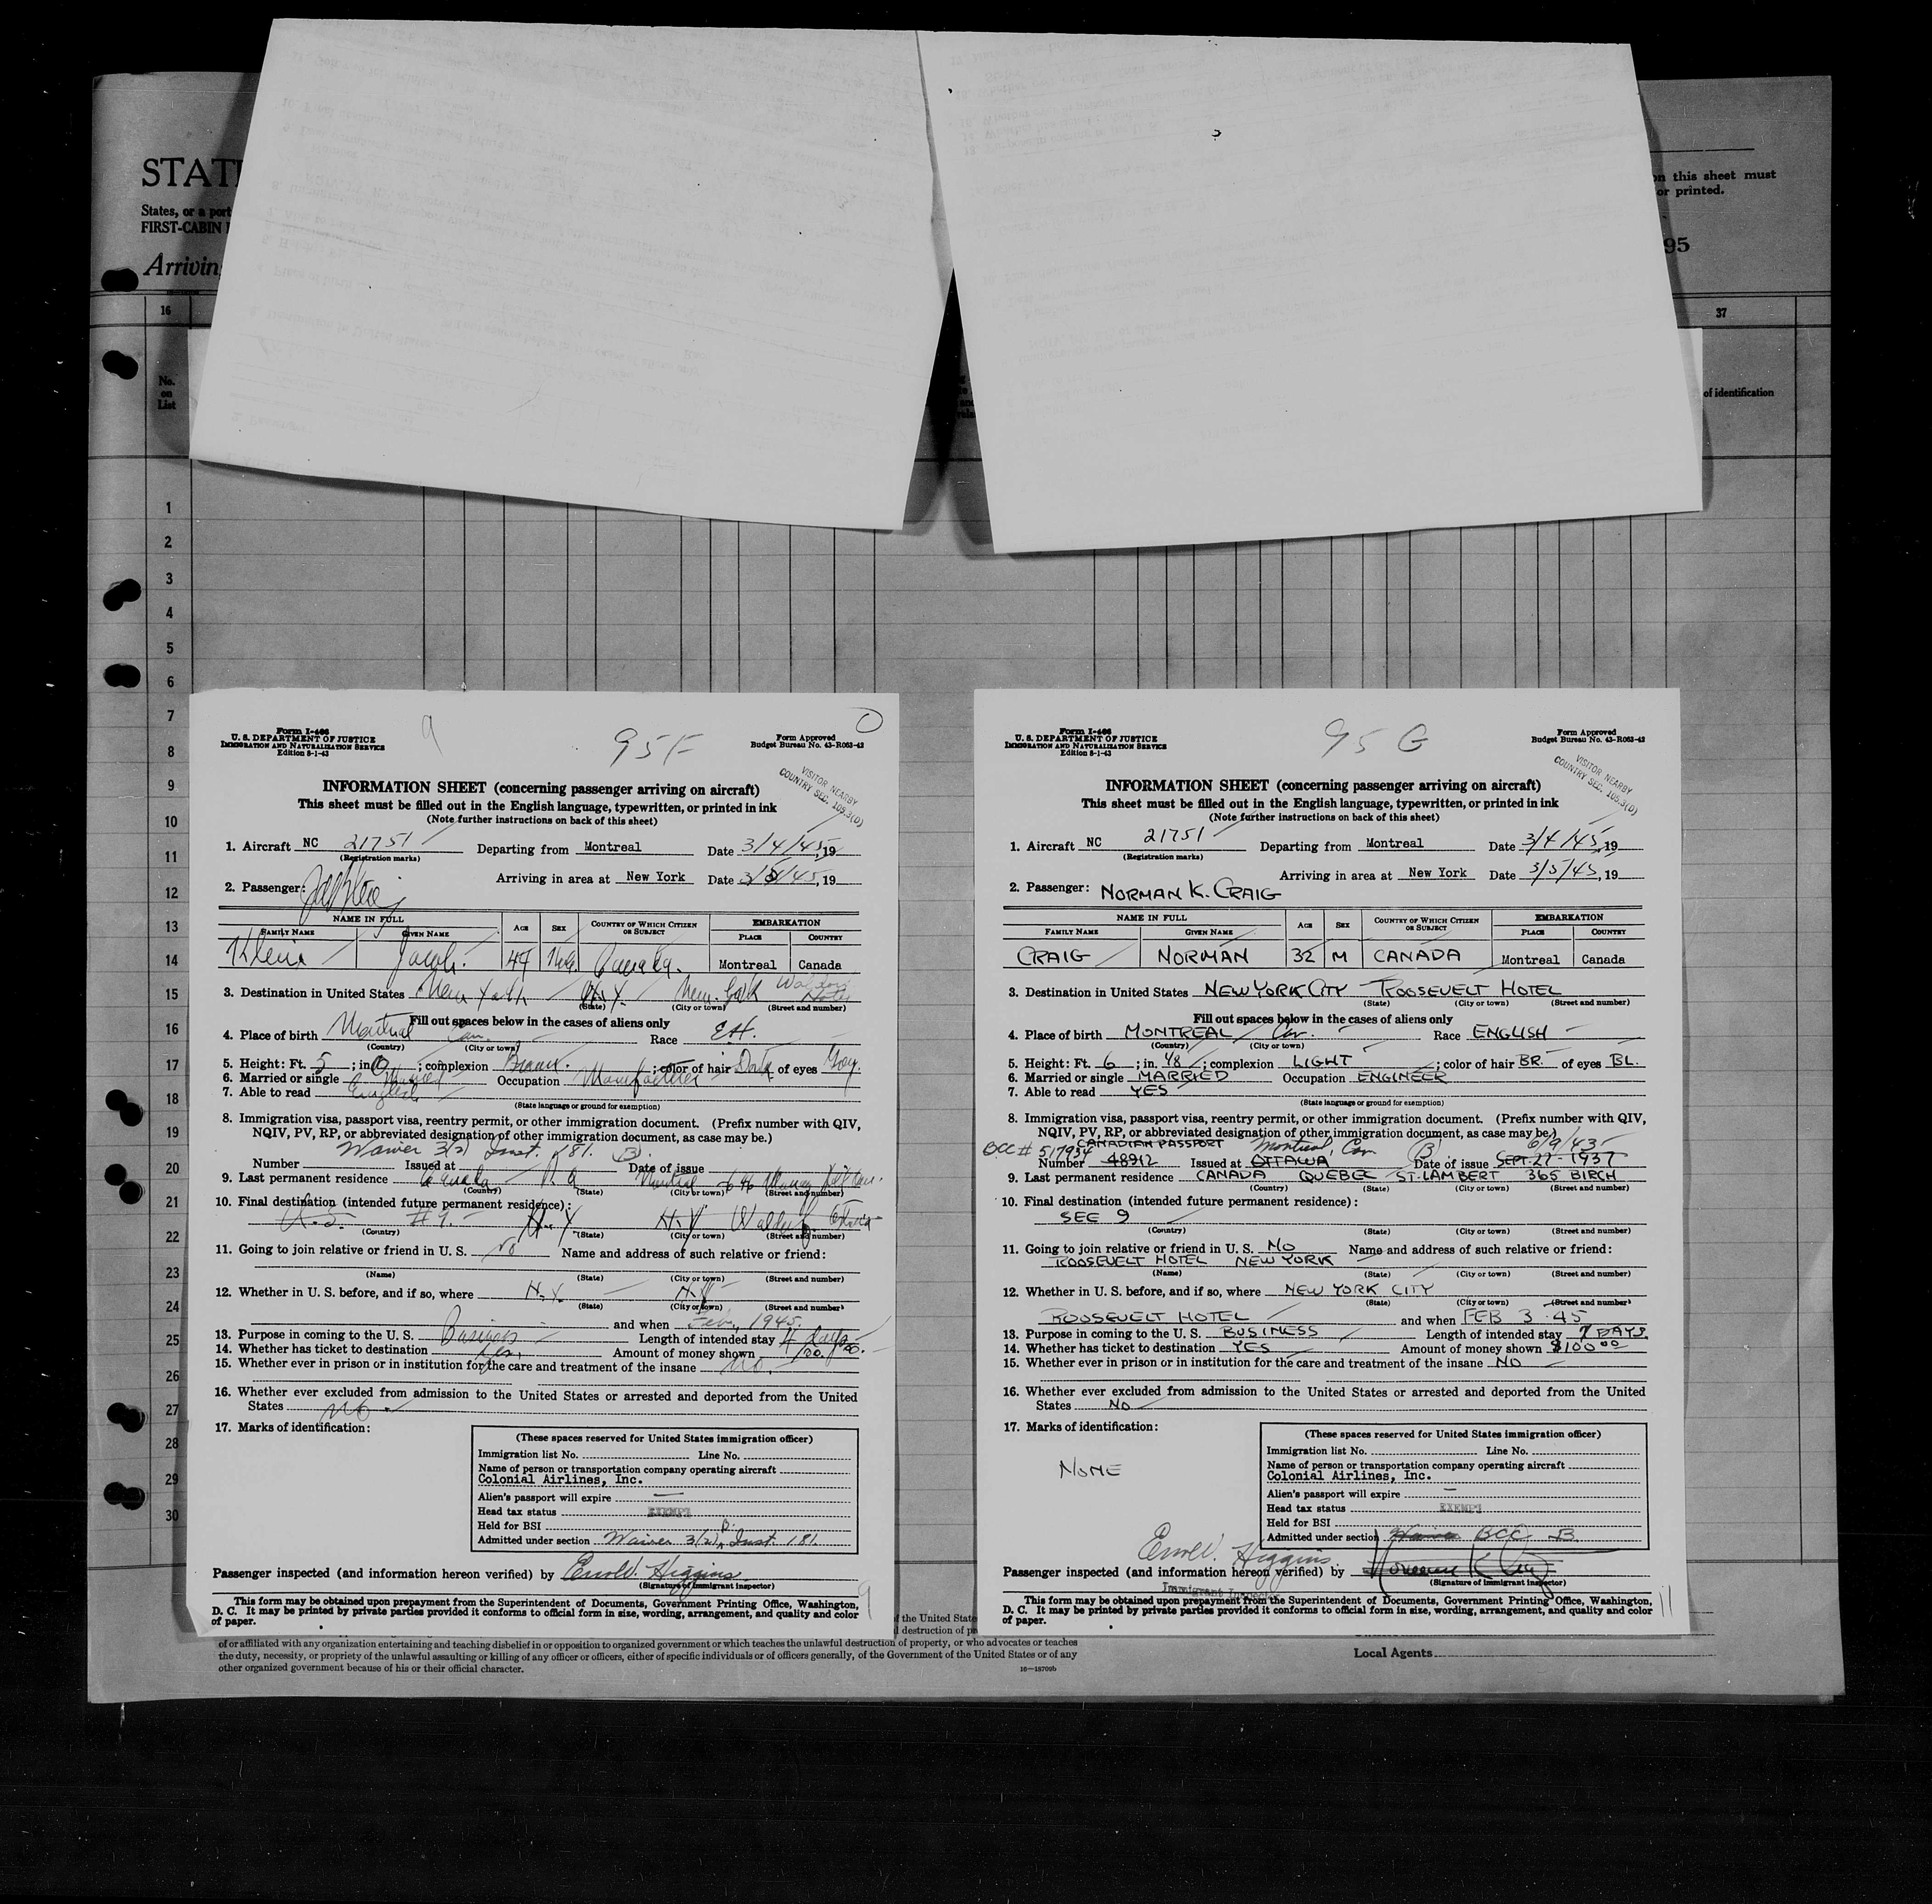 STAT
States, or a port
FIRST-CABIN
Arrivin
on this sheet must
or printed.
95
16
37
No.
on
List
of identification
1
2
3
4
5
6
7
8
9
10
11
12
13
14
15
16
17
18
19
20
21
22
23
24
25
26
27
28
29
30
9
95F
Form I-466
U. S. DEPARTMENT OF JUSTICE
IMMIGRATION AND NATURALIZATION SERVICE
Edition 8-1-43
Form Approved
Budget Bureau No. 43-R063-42
VISITOR NEARBY
COUNTRY SEC. 105.3(D)
INFORMATION SHEET (concerning passenger arriving on aircraft)
This sheet must be filled out in the English language, typewritten, or printed in ink
(Note further instructions on back of this sheet)
1. Aircraft NC 21751 Departing from Montreal Date 3/4/45, 19
(Registration marks)
Arriving in area at New York Date 3/5/45, 19
2. Passenger:
NAME IN FULL AGE SEX COUNTRY OF WHICH CITIZEN OR SUBJECT EMBARKATION
FAMILY NAME GIVEN NAME PLACE COUNTRY
Klein Jacob. 47 Canada. Montreal Canada
3. Destination in United States New York N.Y. New York
(State) (City or town) (Street and number)
Fill out spaces below in the cases of aliens only
4. Place of birth Montreal Can. Race
(Country) (City or town)
5. Height: Ft. 5 ; in. 0 ; complexion Brown. ; color of hair Dark of eyes Grey.
6. Married or single Married Occupation Manufacturer
7. Able to read English
(State language or ground for exemption)
8. Immigration visa, passport visa, reentry permit, or other immigration document. (Prefix number with QIV,
NQIV, PV, RP, or abbreviated designation of other immigration document, as case may be.)
Waiver 3(2) Inst. 181. (B)
Number Issued at Date of issue
9. Last permanent residence Canada Montreal
(Country) (State) (City or town) (Street and number)
10. Final destination (intended future permanent residence):
#9. N.Y. N.Y.
(Country) (State) (City or town) (Street and number)
11. Going to join relative or friend in U. S. no Name and address of such relative or friend:
(Name) (State) (City or town) (Street and number)
12. Whether in U. S. before, and if so, where N.Y. N.Y.
(State) (City or town) (Street and number)
and when Feb., 1945.
13. Purpose in coming to the U. S. Business Length of intended stay 4 days
14. Whether has ticket to destination Yes. Amount of money shown 100.
15. Whether ever in prison or in institution for the care and treatment of the insane No.
16. Whether ever excluded from admission to the United States or arrested and deported from the United
States No.
17. Marks of identification:
(These spaces reserved for United States immigration officer)
Immigration list No. Line No.
Name of person or transportation company operating aircraft
Colonial Airlines, Inc.
Alien's passport will expire —
Head tax status EXEMPT
Held for BSI
Admitted under section Waiver 3(2) B. Inst. 181.
Passenger inspected (and information hereon verified) by Errol W. Higgins
(Signature of immigrant inspector)
This form may be obtained upon prepayment from the Superintendent of Documents, Government Printing Office, Washington,
D. C. It may be printed by private parties provided it conforms to official form in size, wording, arrangement, and quality and color
of paper.
9
95 G
Form I-466
U. S. DEPARTMENT OF JUSTICE
IMMIGRATION AND NATURALIZATION SERVICE
Edition 8-1-43
Form Approved
Budget Bureau No. 43-R063-42
VISITOR NEARBY
COUNTRY SEC. 105.3(D)
INFORMATION SHEET (concerning passenger arriving on aircraft)
This sheet must be filled out in the English language, typewritten, or printed in ink
(Note further instructions on back of this sheet)
1. Aircraft NC 21751 Departing from Montreal Date 3/4/45, 19
(Registration marks)
Arriving in area at New York Date 3/5/45, 19
2. Passenger: NORMAN K. CRAIG
NAME IN FULL AGE SEX COUNTRY OF WHICH CITIZEN OR SUBJECT EMBARKATION
FAMILY NAME GIVEN NAME PLACE COUNTRY
CRAIG NORMAN 32 M CANADA Montreal Canada
3. Destination in United States NEW YORK CITY ROOSEVELT HOTEL
(State) (City or town) (Street and number)
Fill out spaces below in the cases of aliens only
4. Place of birth MONTREAL Can. Race ENGLISH
(Country) (City or town)
5. Height: Ft. 6 ; in. 1/8 ; complexion LIGHT ; color of hair BR. of eyes BL.
6. Married or single MARRIED Occupation ENGINEER
7. Able to read YES
(State language or ground for exemption)
8. Immigration visa, passport visa, reentry permit, or other immigration document. (Prefix number with QIV,
NQIV, PV, RP, or abbreviated designation of other immigration document, as case may be.)
BCC # 517954 CANADIAN PASSPORT Montreal, Can (B) 6/9/43
Number 48912 Issued at OTTAWA Date of issue SEPT. 27 - 1937
9. Last permanent residence CANADA QUEBEC ST. LAMBERT 365 BIRCH
(Country) (State) (City or town) (Street and number)
10. Final destination (intended future permanent residence):
SEE 9
(Country) (State) (City or town) (Street and number)
11. Going to join relative or friend in U. S. NO Name and address of such relative or friend:
ROOSEVELT HOTEL NEW YORK
(Name) (State) (City or town) (Street and number)
12. Whether in U. S. before, and if so, where NEW YORK CITY
(State) (City or town) (Street and number)
ROOSEVELT HOTEL and when FEB 3 45
13. Purpose in coming to the U. S. BUSINESS Length of intended stay 7 DAYS.
14. Whether has ticket to destination YES Amount of money shown $100 00
15. Whether ever in prison or in institution for the care and treatment of the insane NO
16. Whether ever excluded from admission to the United States or arrested and deported from the United
States NO
17. Marks of identification:
NONE
(These spaces reserved for United States immigration officer)
Immigration list No. Line No.
Name of person or transportation company operating aircraft
Colonial Airlines, Inc.
Alien's passport will expire —
Head tax status EXEMPT
Held for BSI
Admitted under section Waiver BCC B.
Errol W. Higgins
Passenger inspected (and information hereon verified) by Norman K Craig
(Signature of immigrant inspector)
Immigrant Inspector
This form may be obtained upon prepayment from the Superintendent of Documents, Government Printing Office, Washington,
D. C. It may be printed by private parties provided it conforms to official form in size, wording, arrangement, and quality and color
of paper.
11
of the United State
destruction of pr
of or affiliated with any organization entertaining and teaching disbelief in or opposition to organized government or which teaches the unlawful destruction of property, or who advocates or teaches
the duty, necessity, or propriety of the unlawful assaulting or killing of any officer or officers, either of specific individuals or of officers generally, of the Government of the United States or of any
other organized government because of his or their official character.
16—18709b
Local Agents